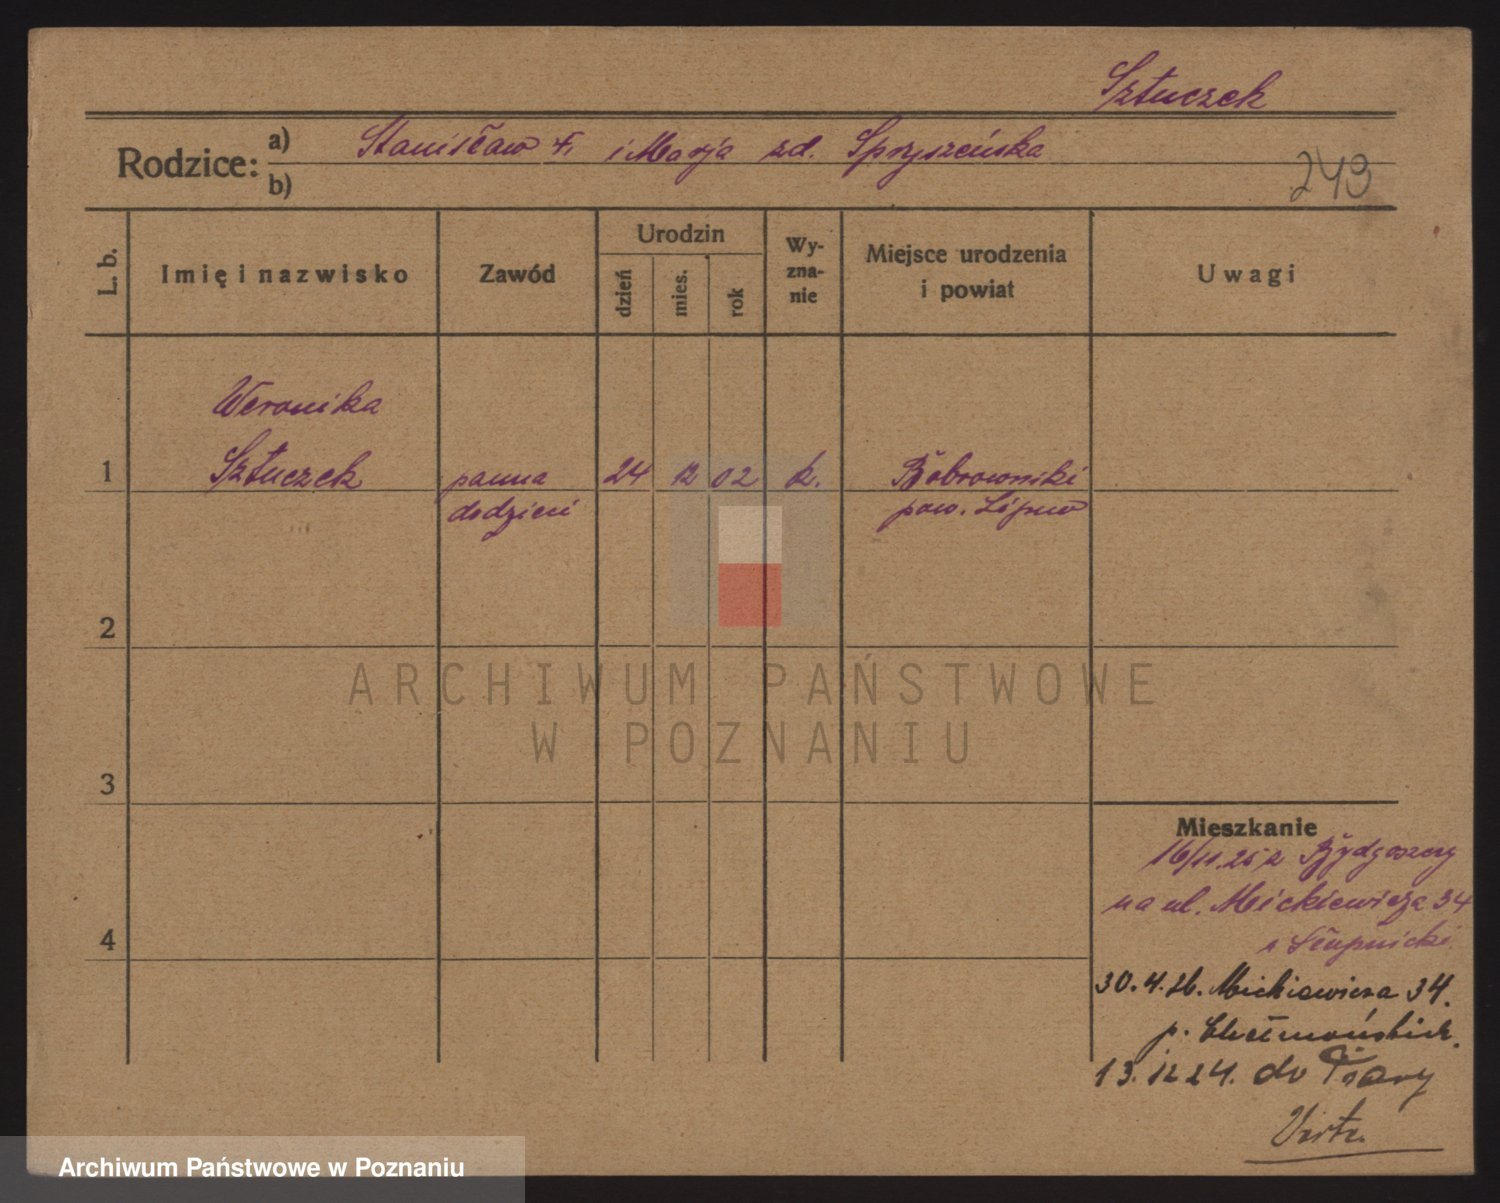 Sztuczek
Rodzice:
a) Stanisław i Marja zd. Spryszeńska
b)
249
L. b.
Imię i nazwisko
Zawód
Urodzin
dzień
mies.
rok
Wy-
zna-
nie
Miejsce urodzenia
i powiat
Uwagi
Weronika
1 Sztuczek panna 24 12 02 k. Bobrowniki
do dzieci pow. Lipno
2
3
4
Mieszkanie
16/11.25 z Bydgoszczy
na ul. Mickiewicza 34
Słupnicki
30.4.26. Mickiewicza 34.
p. Chełmońskich.
13.12 24. do
Verte.
ARCHIWUM PAŃSTWOWE
W POZNANIU
Archiwum Państwowe w Poznaniu